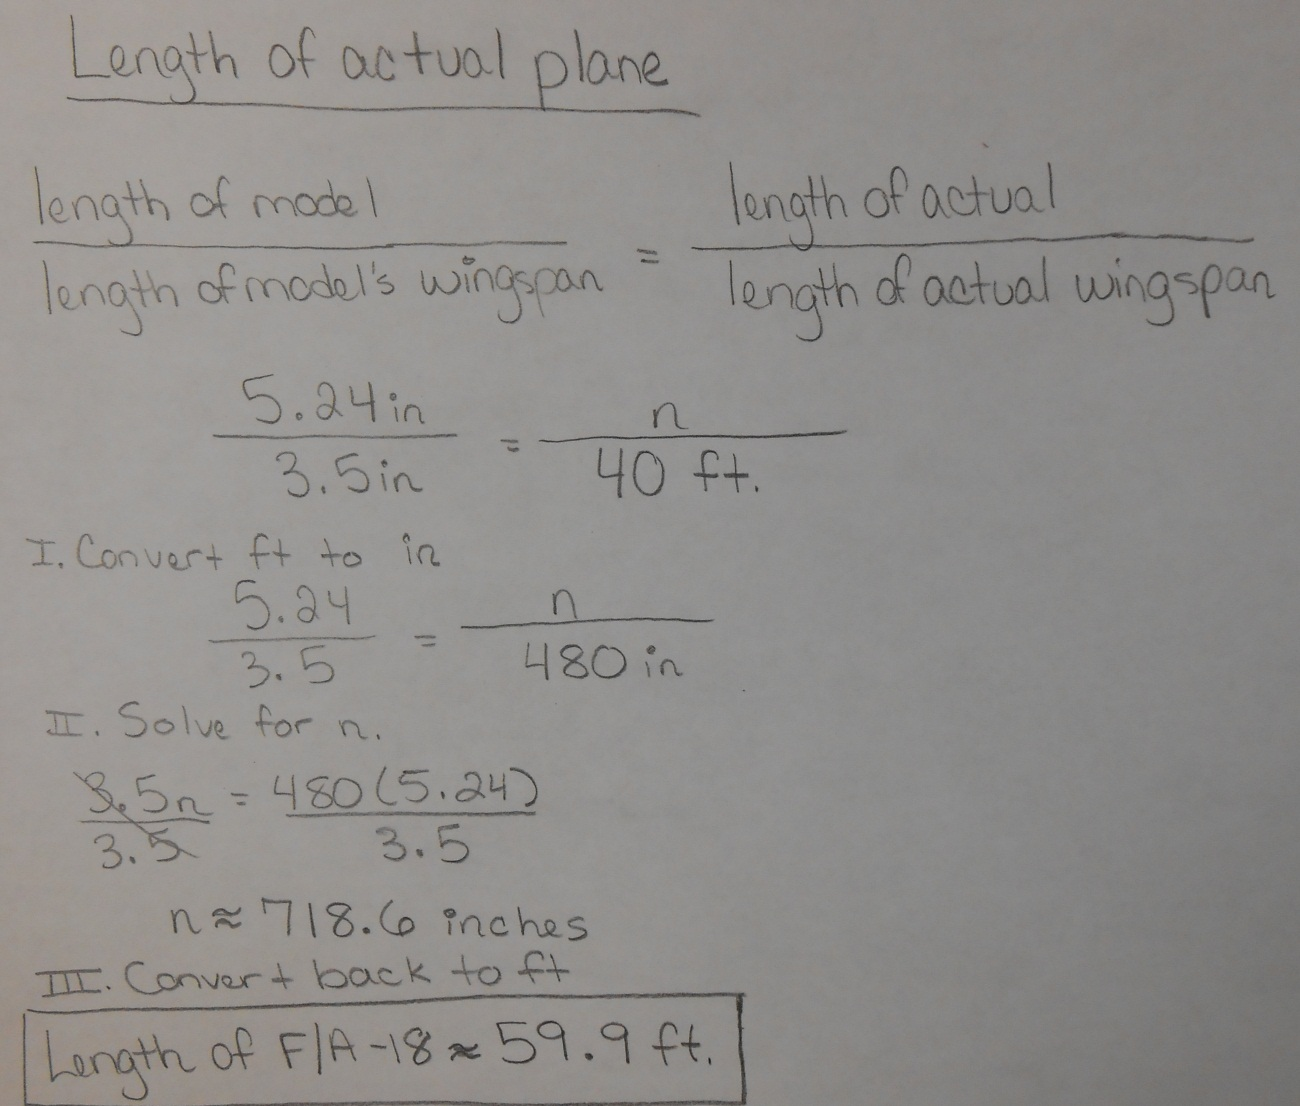 Length of actual plane
length of model / length of model's wingspan = length of actual / length of actual wingspan
5.24in / 3.5in = n / 40 ft.
I. Convert ft to in
5.24 / 3.5 = n / 480 in
II. Solve for n.
3.5n / 3.5 = 480(5.24) / 3.5
n ≈ 718.6 inches
III. Convert back to ft
Length of F/A-18 ≈ 59.9 ft.